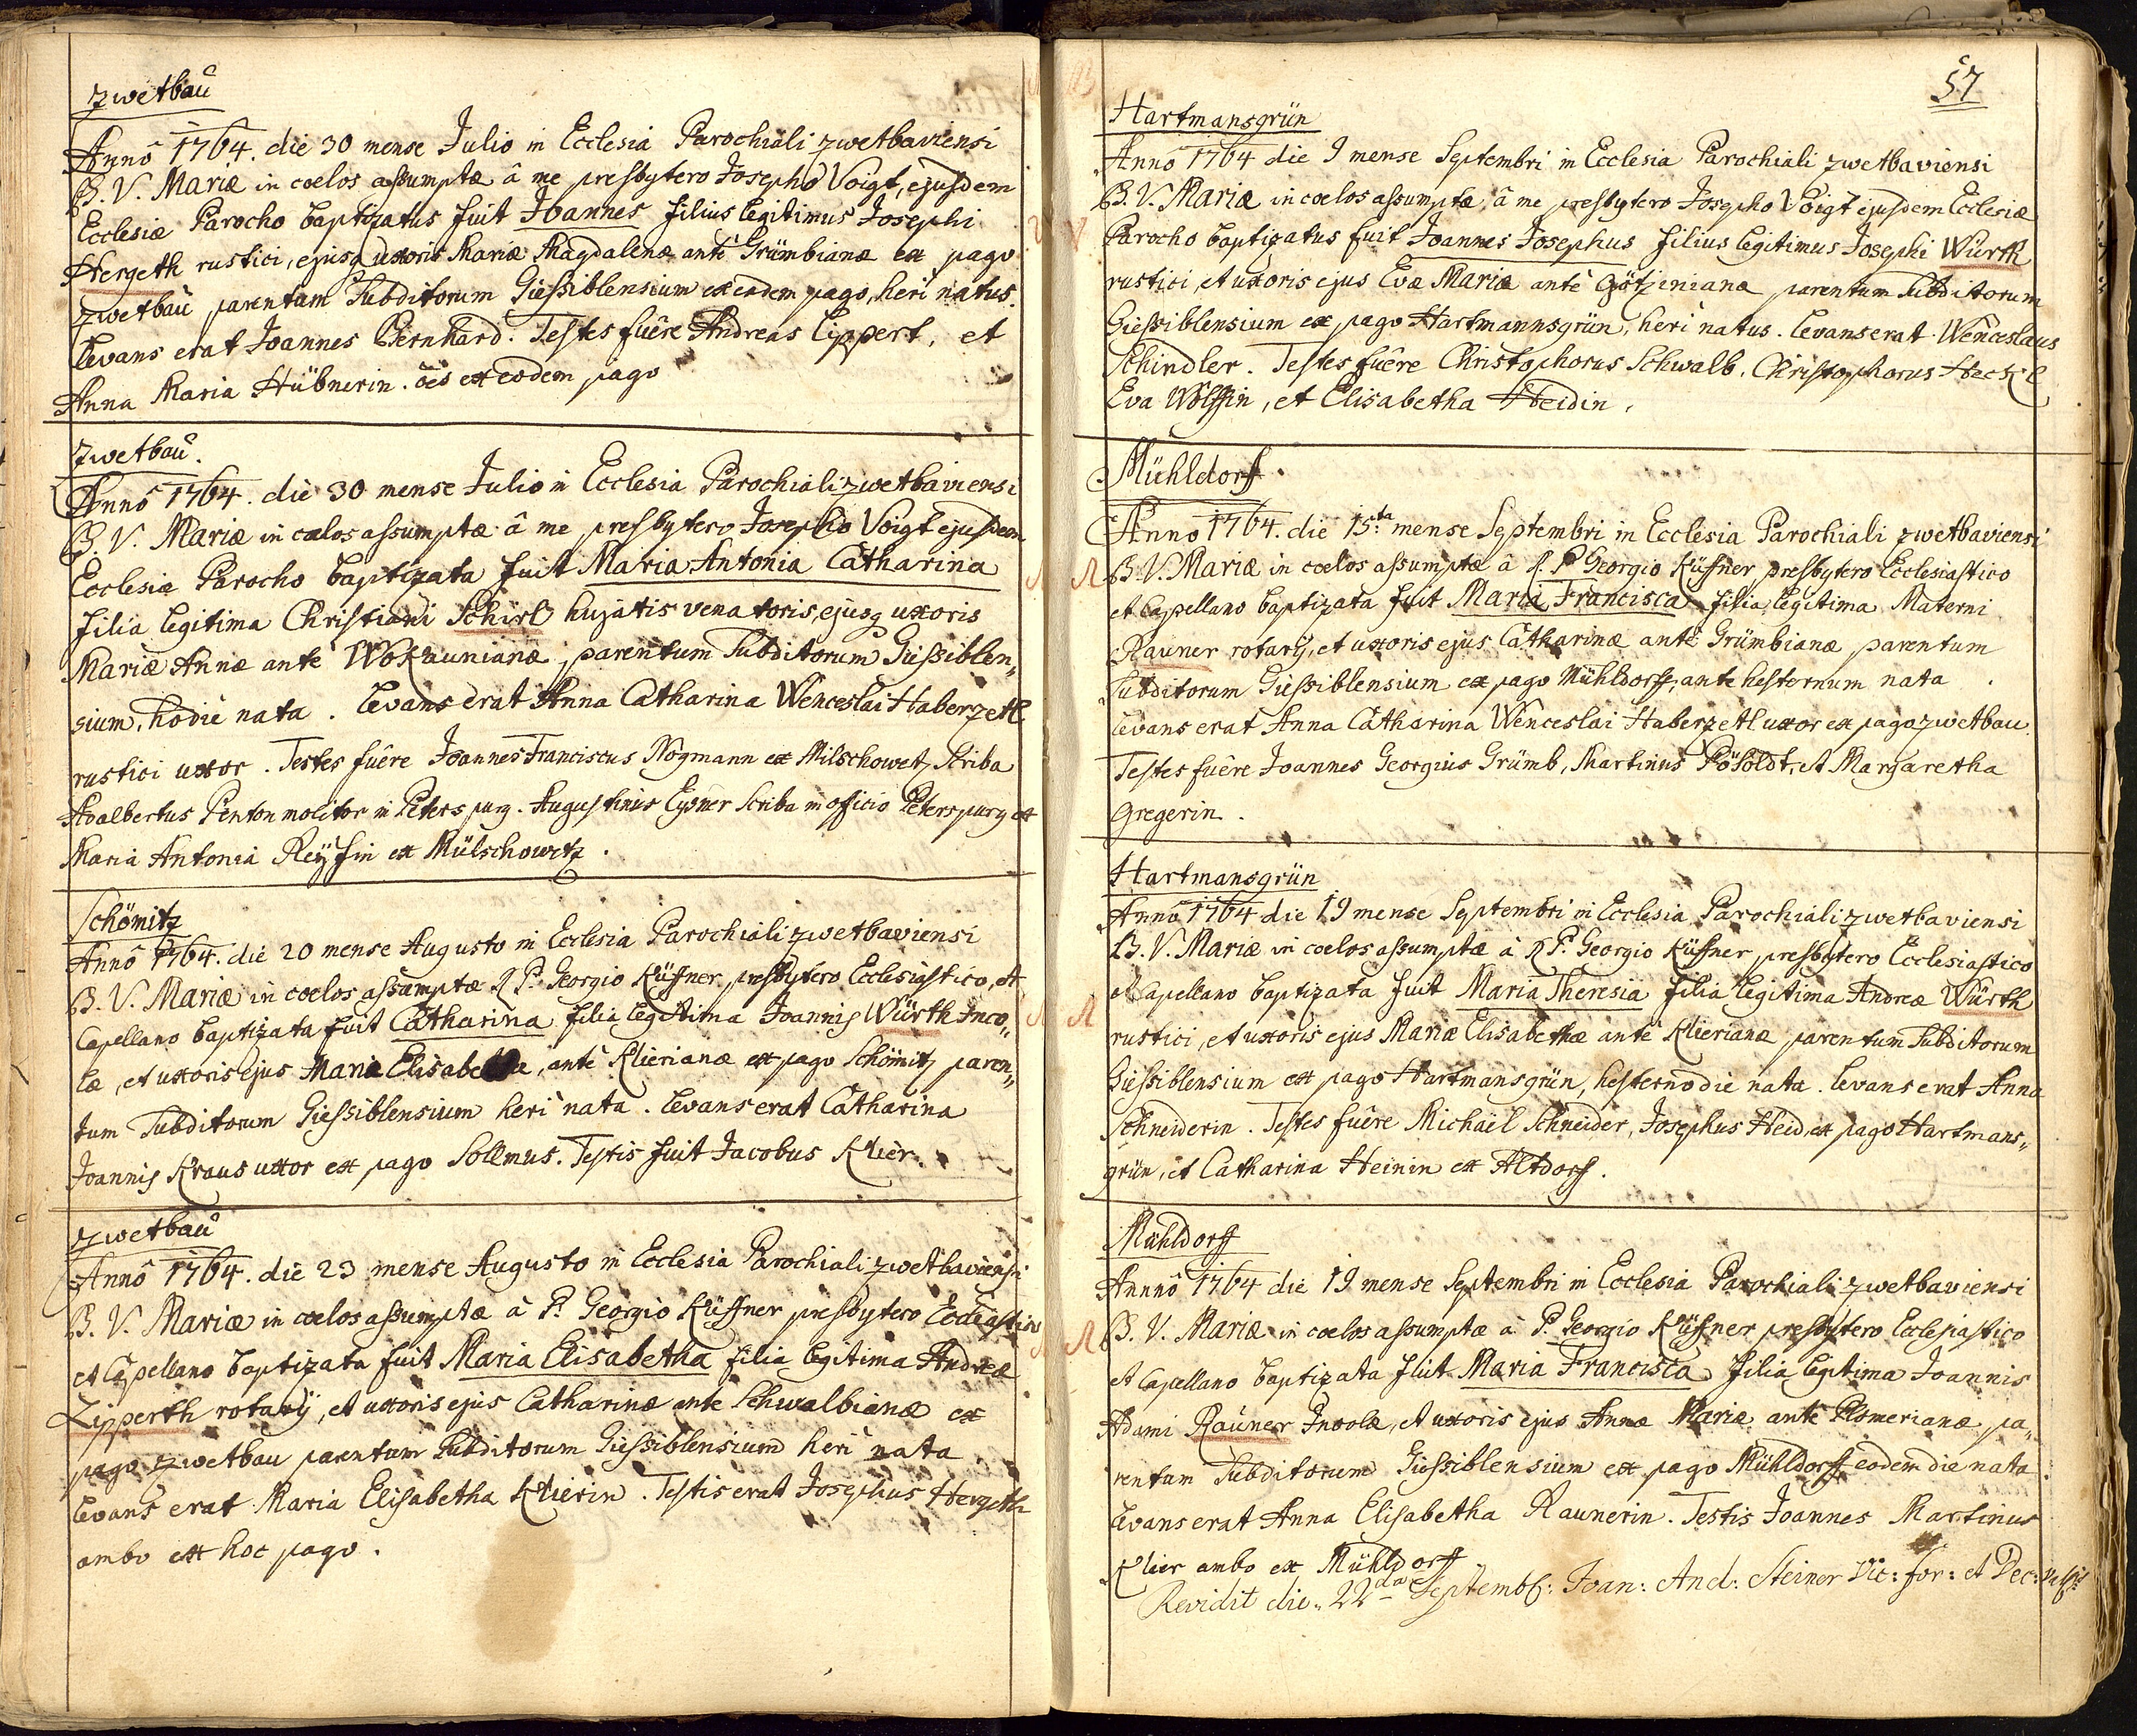 Zwetbau
Anno 1764. die 30 mense Julio in Ecclesia Parochiali Zwetbaviensi
B. V. Mariæ in coelos assumptæ â me presbytero Josepho Voigt, ejusdem
Ecclesiæ Parocho baptizatus fuit Joannes filius legitimus Josephi
Hergeth rustici, ejusq uxoris Mariæ Magdalenæ antè Grümbianæ ex pago
Zwetbau parentum Subditorum Giessiblensium ex eodem pago, heri natus.
Levans erat Joannes Bernhard. Testes fuêre Andreas Lippert, et
Anna Maria Hübnerin. oês ex eodem pago
Zwetbau.
Anno 1764. die 30 mense Julio in Ecclesia Parochiali Zwetbaviensi
B. V. Mariæ in cœlos assumptæ â me presbytero Josepho Voigt ejusdem
Ecclesiæ Parocho baptizata fuit Maria Antonia Catharina
filia legitima Christiani Schirl hujatis venatoris, ejusq uxoris
Mariæ Annæ antè Wokaunianæ parentum Subditorum Giessiblen„
sium, hodie nata. Levans erat Anna Catharina Wenceslai Haberzetl
rustici uxor. Testes fuêre Joannes Franciscus Nogmann ex Milschowetz Scriba
Adalbertus Penton molitor in Peterspurg. Augustinus Eysner Scriba in officio Peterspurg et
Maria Antonia Reyssin ex Mülschowetz.
Schömitz
Anno 1764. die 20 mense Augusto in Ecclesia Parochiali Zwetbaviensi
B. V. Mariæ in coelos assumptæ R P. Georgio Küffner presbytero Ecclesiastico, et
Capellano baptizata fuit Catharina filia legitima Joannis Würth Inco„
læ, et uxoris ejus Mariæ Elisabethæ, antè Klierianæ ex pago Schömitz paren„
tum Subditorum Giessiblensium heri nata. Levans erat Catharina
Joannis Kraus uxor ex pago Sollmus. Testis fuit Jacobus Klier.
Zwetbau
Anno 1764. die 23 mense Augusto in Ecclesia Parochiali Zwetbaviensi
B. V. Mariæ in cœlos assumptæ à P. Georgio Küffner presbytero
et Capellano baptizata fuit Maria Elisabetha filia legitima Andreæ
Lipperth rotarÿ, et uxoris ejus Catharinæ ante Schwalbianæ ex
pago Zwetbau parentum Subditorum Giessiblensium heri nata
Levans erat Maria Elisabetha Klierin. Testis erat Josephus Hergeth
ambo ex hoc pago.
57
Hartmansgrün
Anno 1764 die 9 mense Septembri in Ecclesia Parochiali Zwetbaviensi
B. V. Mariæ in cœlos assumptæ, â me presbytero Josepho Voigt ejusdem Ecclesiæ
Parocho baptizatus fuit Joannes Josephus filius legitimus Josephi Würth
rustici, et uxoris ejus Evæ Mariæ antè Götzinianæ parentum Subditorum
Giessiblensium ex pago Hartmannsgrün, heri natus. Levans erat Wenceslaus
Schindler. Testes fuêre Christophorus Schwalb. Christophorus Heckl
Eva Wölffin, et Elisabetha Heidin.
Mühldorff.
Anno 1764. die 15.ta mense Septembri in Ecclesia Parochiali Zwetbaviensi
B. V. Mariæ in cœlos assumptæ â R. P Georgio Küffner presbytero Ecclesiastico
et Capellano baptizata fuit Maria Francisca filia legitima Materni
Rauner rotarÿ, et uxoris ejus Catharinæ antè Grümbianæ parentum
Subditorum Giessiblensium ex pago Mühldorff, ante hesternum nata.
Levans erat Anna Catharina Wenceslai Haberzetl uxor ex pago Zwetbau.
Testes fuêre Joannes Georgius Grümb, Martinus Pösoldt, et Margaretha
Gregerin.
Hartmansgrün
Anno 1764 die 19 mense Septembri in Ecclesia Parochiali Zwetbaviensi
B. V. Mariæ in coelos assumptæ à R P. Georgio Küffner presbytero Ecclesiastico
et Capellano baptizata fuit Maria Theresia filia legitima Andreæ Würth
rustici, et uxoris ejus Mariæ Elisabethæ antè Klierianæ parentum Subditorum
Giessiblensium ex pago Hartmansgrün, hesterno die nata. Levans erat Anna
Schneiderin. Testes fuêre Michaël Schneider, Josephus Heid, ex pago Hartmans„
grün, et Catharina Heinin ex Altdorf.
Mühldorff
Anno 1764 die 19. mense Septembri in Ecclesia Parochiali Zwetbaviensi
B. V. Mariæ in cœlos assumptæ à P. Georgio Küffner presbytero Ecclesiastico
et Capellano baptizata fuit Maria Francisca filia legitima Joannis
Adami Rauner Incolæ, et uxoris ejus Annæ Mariæ antè Plomerianæ, pa„
rentum Subditorum Giessiblensium ex pago Mühldorff eodem die nata.
Levans erat Anna Elisabetha Raunerin. Testis Joannes Martinus
Klier ambo ex Mühldorff
Revidit die 22da Septemb: Joan: And: Steiner Vic: for: et Dec: